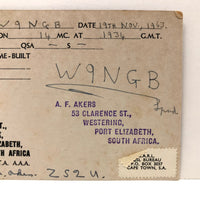 W9NGB DATE 19TH NOV, 1967.
ON 14 MC. AT 1934 G.M.T.
QSA — S —
ME-BUILT
W9NGB
A. F. AKERS
53 CLARENCE ST.,
WESTERING,
PORT ELIZABETH,
SOUTH AFRICA.
ST.,
H AFRICA
A.A.A.
ZS2U.
BUREAU
P.O. BOX 3037
CAPE TOWN, S.A.